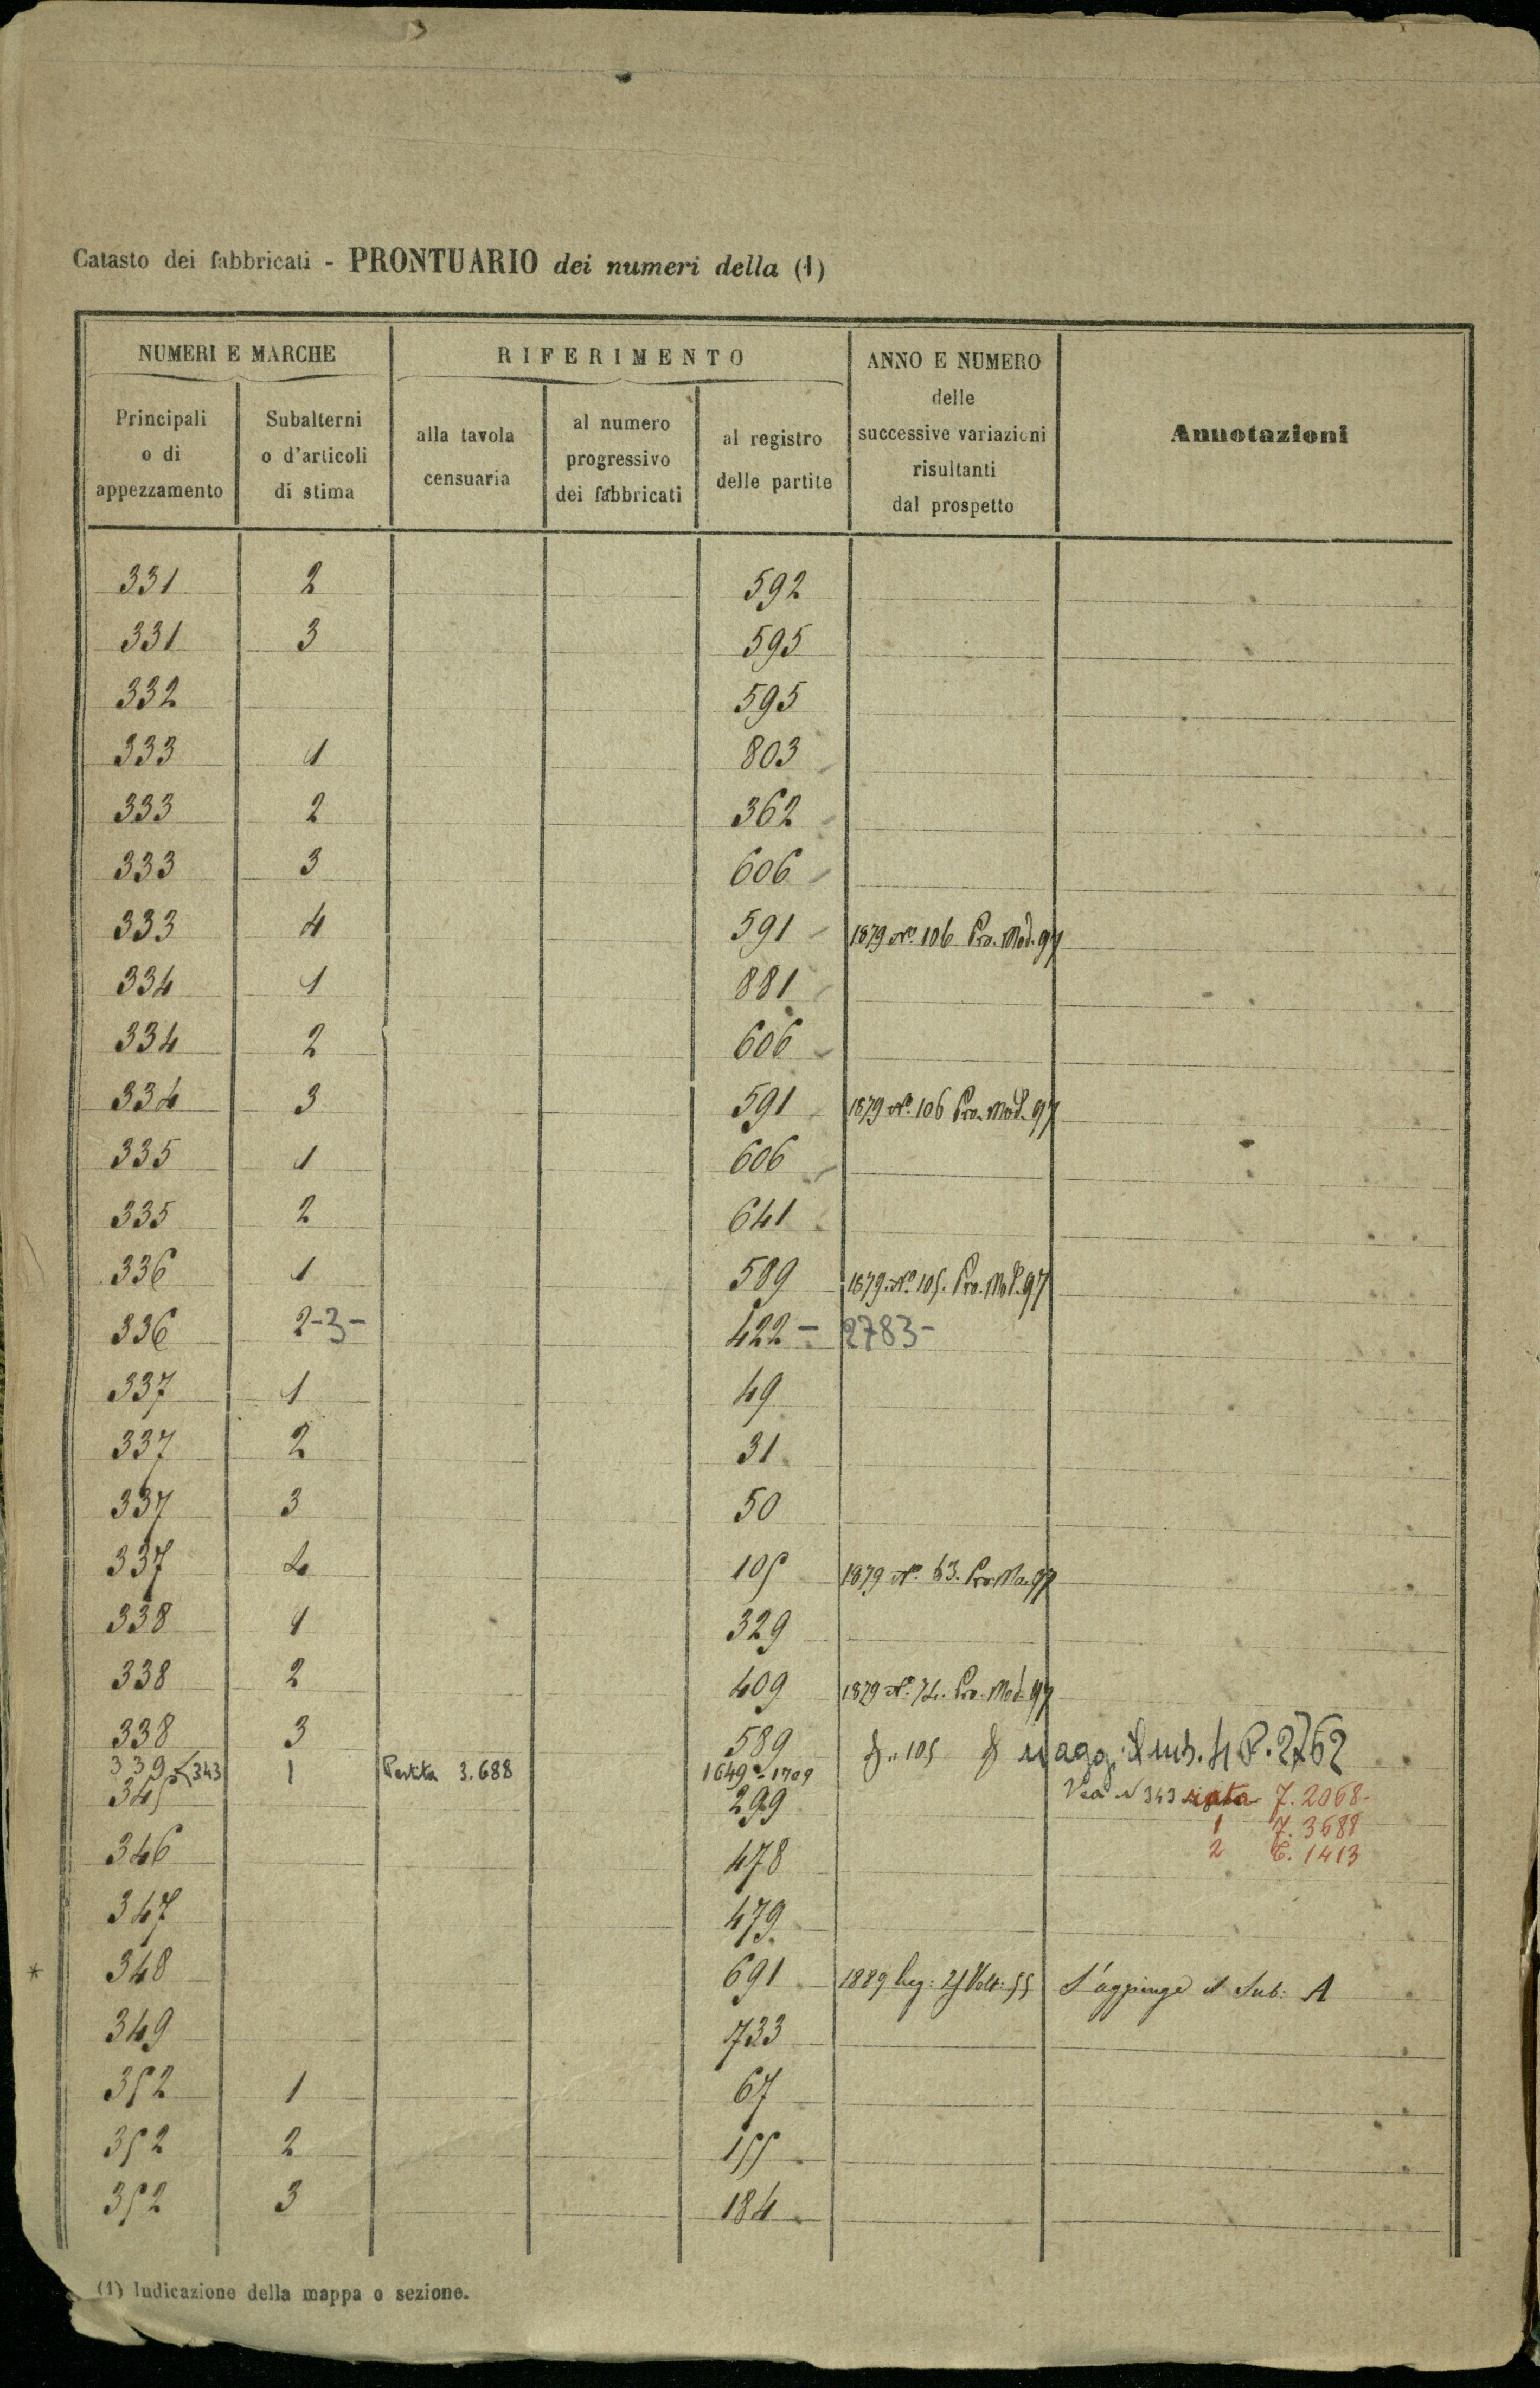 Catasto dei fabbricati - PRONTUARIO dei numeri della (1)
NUMERI E MARCHE
RIFERIMENTO
ANNO E NUMERO delle successive variazioni risultanti dal prospetto
Annotazioni
Principali o di appezzamento
Subalterni o d'articoli di stima
alla tavola censuaria
al numero progressivo dei fabbricati
al registro delle partite
331 2 592
331 3 595
332 595
333 1 803
333 2 362
333 3 606
333 4 591 1879 N.º 106 Pro. Mod. 97
334 1 881
334 2 606
334 3 591 1879 N.º 106 Pro. Mod. 97
335 1 606
335 2 641
336 1 589 1879. N.º 105. Pro. Mod. 97
336 2-3- 422 - 2783-
337 1 49
337 2 31
337 3 50
337 4 105 1879 N.º 63. Pro. Mo. 97
338 1 329
338 2 409 1879 N.º 74. Pro. Mod. 97
338 3 589 " 105 agg. il sub. 4 P. 2762
339 343 1 Partita 3.688 1649 - 1709
345 299 343 7. 2068-
1 7. 3688
346 478 2 1413
347 479
* 348 691 1889 S'aggiunge il Sub: A
349 733
352 1 67
352 2 155
352 3 184
(1) Indicazione della mappa o sezione.